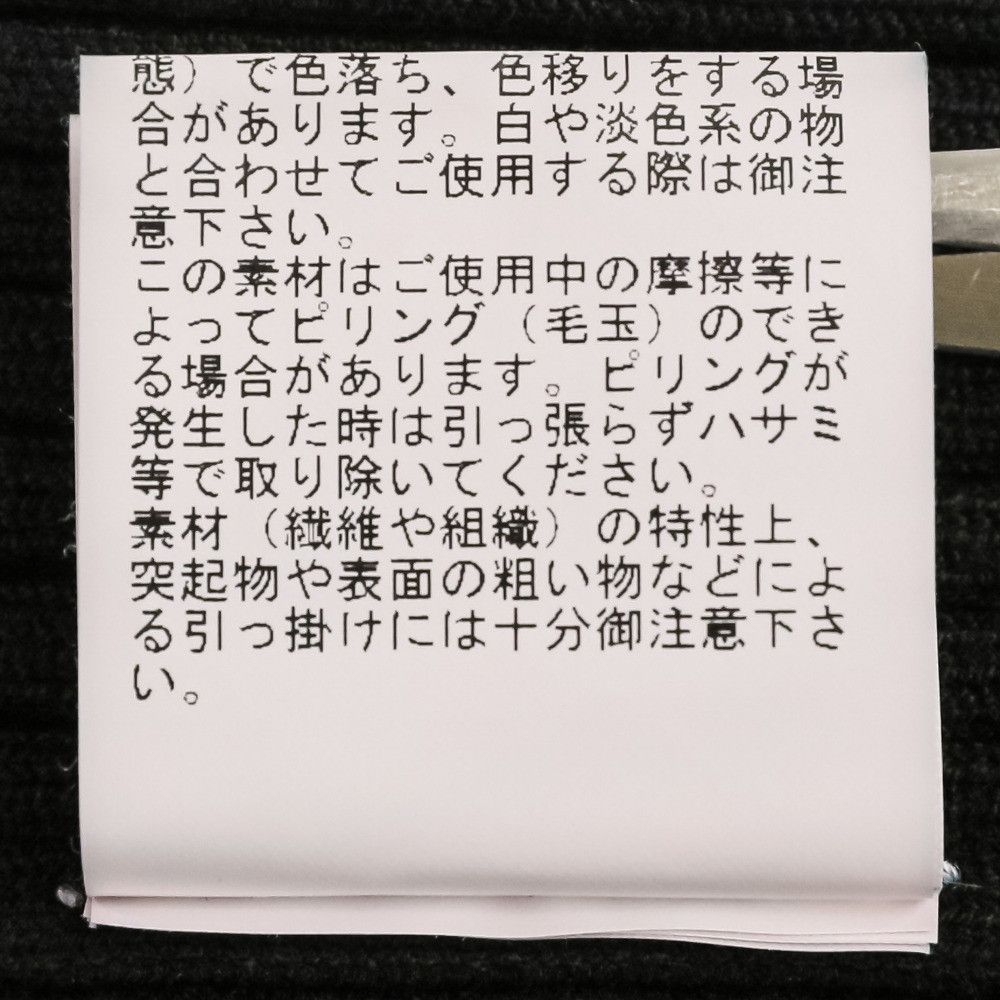 態）で色落ち、色移りをする場
合があります。白や淡色系の物
と合わせてご使用する際は御注
意下さい。
この素材はご使用中の摩擦等に
よってピリング（毛玉）のでき
る場合があります。ピリングが
発生した時は引っ張らずハサミ
等で取り除いてください。
素材（繊維や組織）の特性上、
突起物や表面の粗い物などによ
る引っ掛けには十分御注意下さ
い。